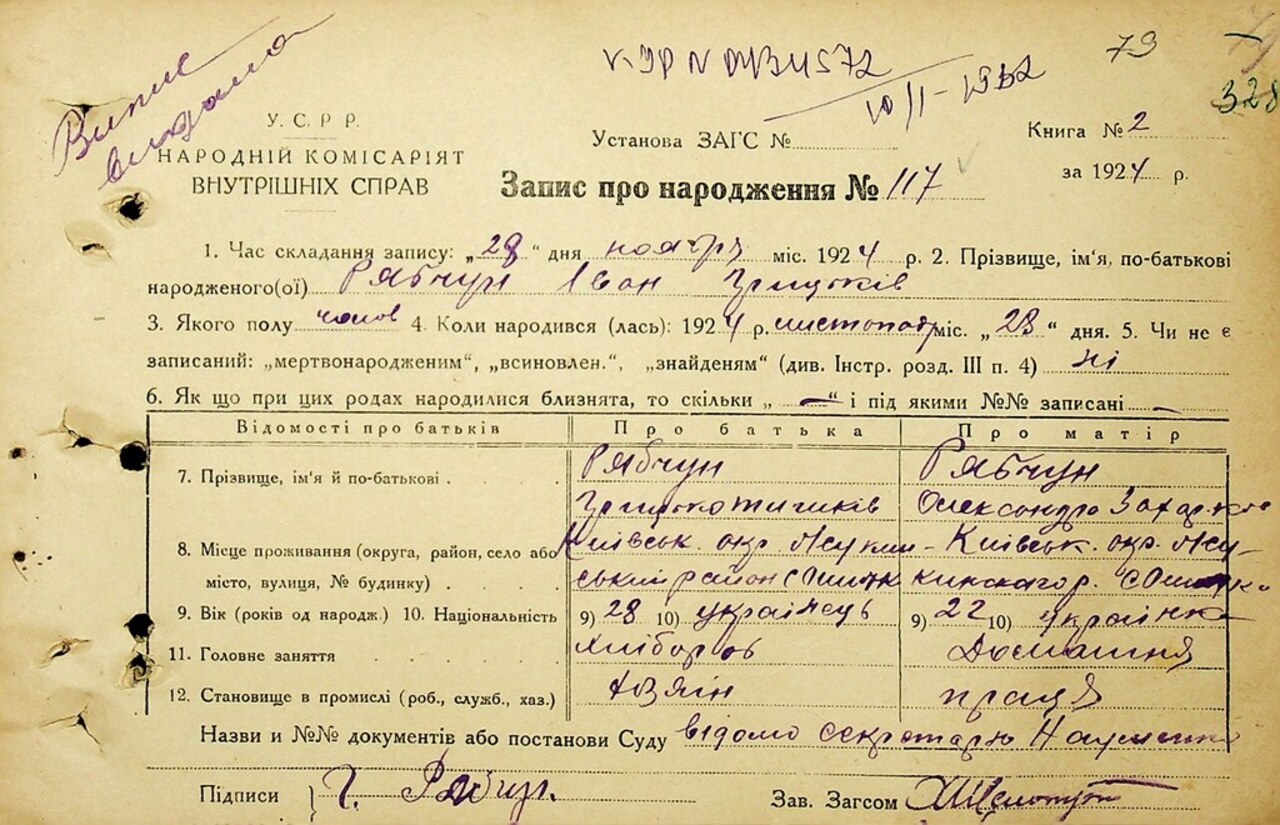 79
328
Випис
видано
10/I - 1962
У. С. Р. Р.
НАРОДНІЙ КОМІСАРІЯТ
ВНУТРІШНІХ СПРАВ
Установа ЗАГС №
Книга № 2
за 1924 р.
Запис про народження № 117
1. Час складання запису: „28“ дня ноября міс. 1924 р. 2. Прізвище, ім'я, по-батькові
народженого(ої) Рябчун Іван Грицьків
3. Якого полу 4. Коли народився (лась): 1924 р. листопад міс. „23“ дня. 5. Чи не є
записаний: „мертвонародженим“, „всиновлен.“, „знайденям“ (див. Інстр. розд. III п. 4) ні
6. Як що при цих родах народилися близнята, то скільки „—“ і під якими №№ записані —
Відомості про батьків Про батька Про матір
7. Прізвище, ім'я й по-батькові . Рябчун Рябчун
Грицько Олександра
8. Місце проживання (округа, район, село або Київськ. окр. Київськ. окр.
місто, вулиця, № будинку) . ський район
9. Вік (років од народж.) 10. Національність 9) 28 10) українець 9) 22 10) українка
11. Головне заняття . . . . . хлібороб Домашня
12. Становище в промислі (роб., служб., хаз.) хазяін праця
Назви и №№ документів або постанови Суду відомо секретарю
Підписи } Г. Рябчун.
Зав. Загсом